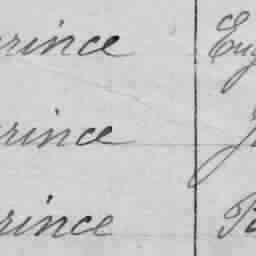 rince Eug
rince
rince